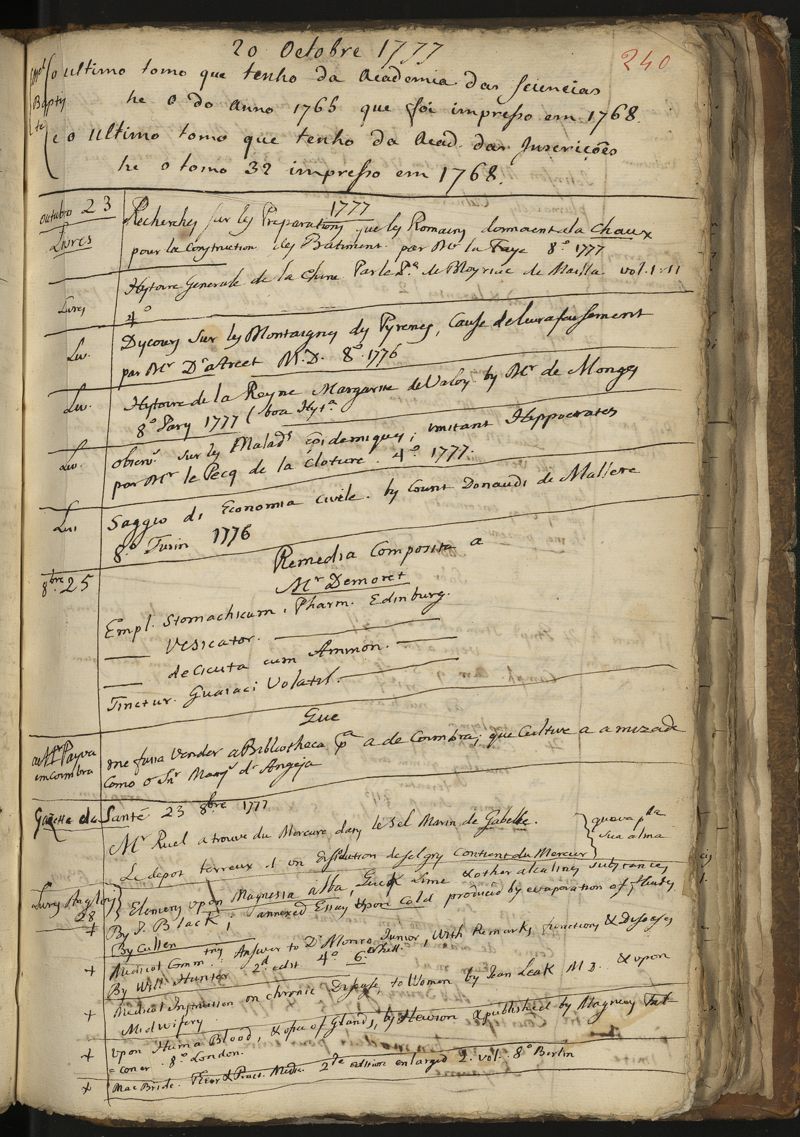 20 Octobre 1777
240
o ultimo tomo que tenho da Academia das sciencias
he o do anno 1765 que foi impresso em 1768
e o ultimo tomo que tenho da Acad. das Inscrições
he o tomo 32 impresso em 1768.
1777
outubro 23
Livres
Recherches sur les Preparations que les Romains donnaent da Chaux
pour la Construction des Batiment par Mr. la Faye 8.º 1777
Livres
Hystoire Generale de la Chine Par le Pa. de Moyriac de Mailla vol. 1: 11
4º
Liv.
Dycours sur les Montaignes des Pyrenes, Cause de leur afaissement
par Mr D'arcet M.D. 8º 1776
Liv.
Hystoire de la Reyne Margarite de Valoy by Mr de Monges
8º Pary 1777 (boa Hysta
Liv.
observ. sur les Malads epidemiques; imitant Hippocrates
par Mr le Pecq de la Cloture. 4º 1777.
Livr
Saggio di Economia Civile. by Count Donaudi de Mallere
8º Turin 1776
8bre 25
Remedia Composita a
Mr Demoret
Empl. Stomachicum. Pharm. Edinburg.
— Vesicator. —
— de Cicuta cum Ammon. —
Tinctur. Guaiaci Volatil. —
Que
a Mr Payva
em Coimbra
me fassa vender a Bibliotheca pa a de Coimbra; que Cultive a amizade
Como o Snr Marqs de Angeja
Gazetta da Santé 23 8bre 1777
Mr Ruel a trouve du Mercure dans le sel Marin de Gabelle.
Le depot terreux d'un dissolution de sel gry Contient du Mercur
sua alma
Livres Anglois
28
Elemens upon Magnesia alba Quick Lime & other alcaline substances
By J. Black; annexed Essay upon Cold produced by evaporation of fluids
By Cullen
+ Medical Commtry Answer to Dr Monro Junior, With Remarks, function & diseases
By Will Hunter 2d edit 4º 6 shill.
+ Medical Instruction on chronic Disease, to Women by Jean Leak M D. & upon
Midwifery
+ Upon Huma Blood, & of Glands, by Hewson & published by Magnus Fal-
=coner. 8º London.
+ MacBride. Theor & Pract. Medic. 2de edition enlarged 2. vol. 8º Berlin